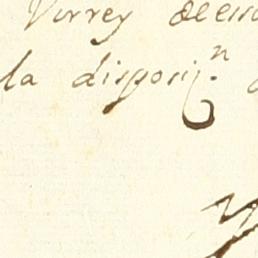 Virrey de esa
la disposiz.n